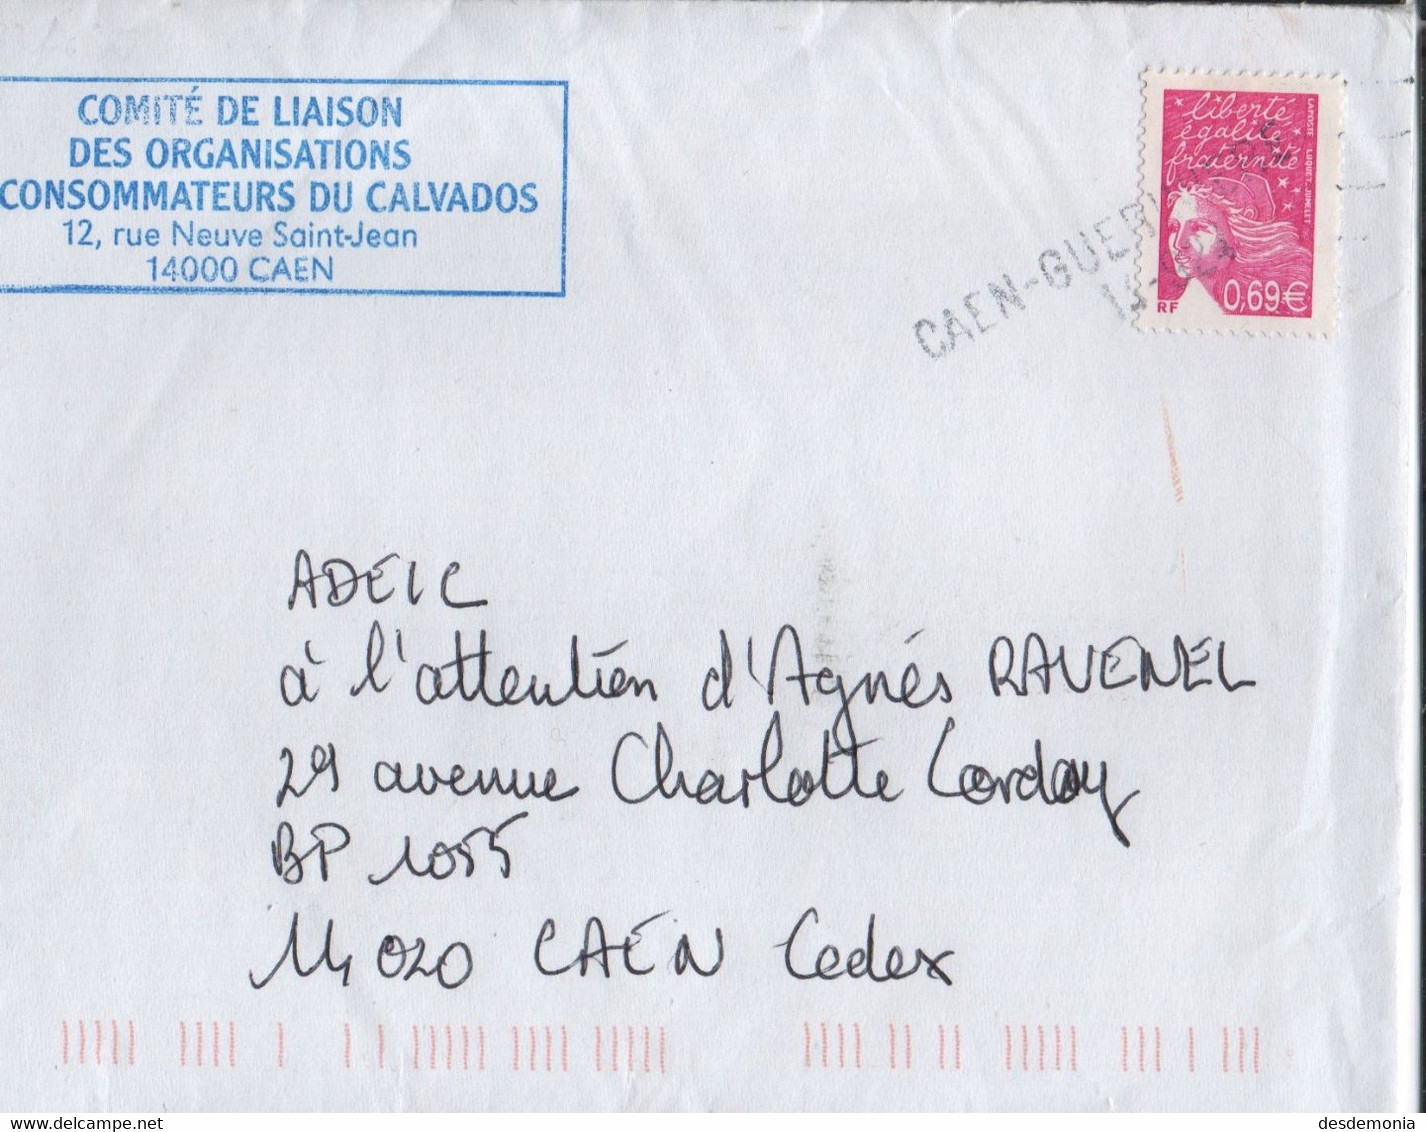 COMITÉ DE LIAISON
DES ORGANISATIONS
CONSOMMATEURS DU CALVADOS
12, rue Neuve Saint-Jean
14000 CAEN
liberté
égalité
fraternité
LA POSTE LUQUET_JUMELET
RF
0,69€
CAEN-GUERINIERE
ADEIC
à l'attention d'Agnès RAVENEL
29 avenue Charlotte Corday
BP 1055
14020 CAEN Cedex
www.delcampe.net
desdemonia